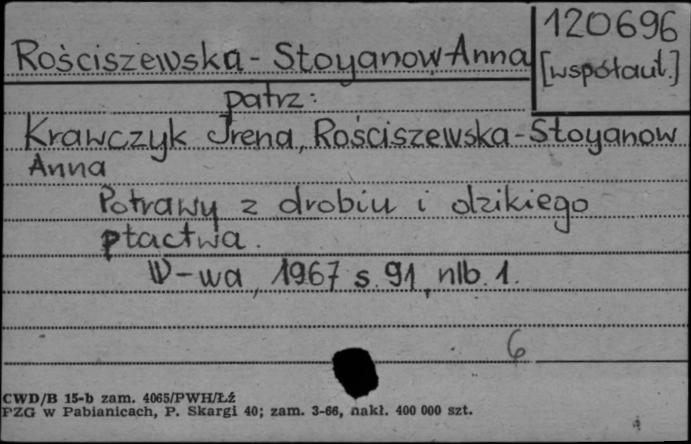 120696
Rościszewska-Stoyanow Anna
[współaut.]
patrz:
Krawczyk Irena, Rościszewska-Stoyanow
Anna
Potrawy z drobiu i dzikiego
ptactwa.
W-wa, 1967 s. 91, nlb. 1.
6
CWD/B 15-b zam. 4065/PWH/Łź
PZG w Pabianicach, P. Skargi 40; zam. 3-66, nakł. 400 000 szt.